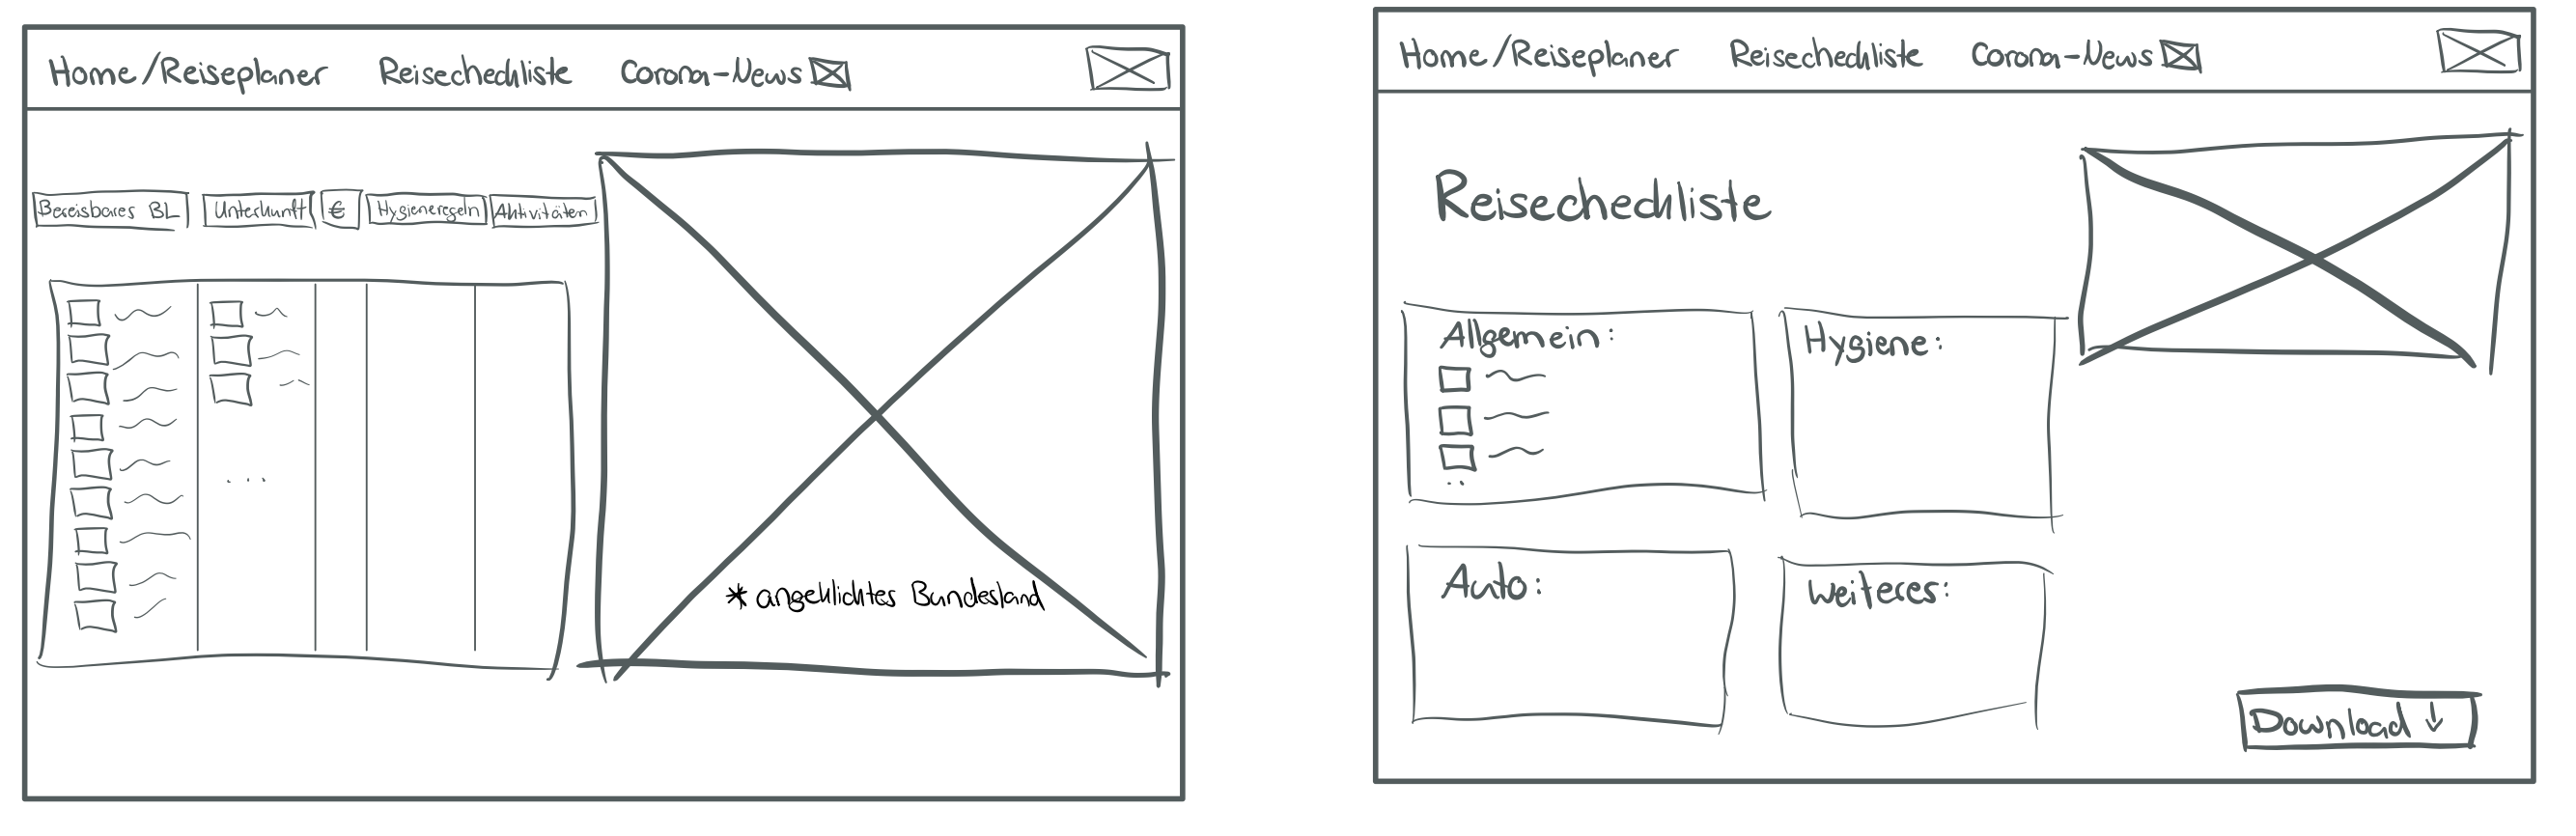 Home/Reiseplaner Reisecheckliste Corona-News
Bereisbares BL Unterkunft € Hygieneregeln Aktivitäten
...
* angeklicktes Bundesland
Home/Reiseplaner Reisecheckliste Corona-News
Reisecheckliste
Allgemein:
..
Hygiene:
Auto:
Weiteres:
Download ↓